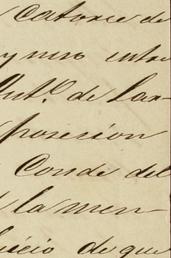 Catorce de
y uno entre
Ant.º de Lar-
posicion
Conde del
la men-
icio de que